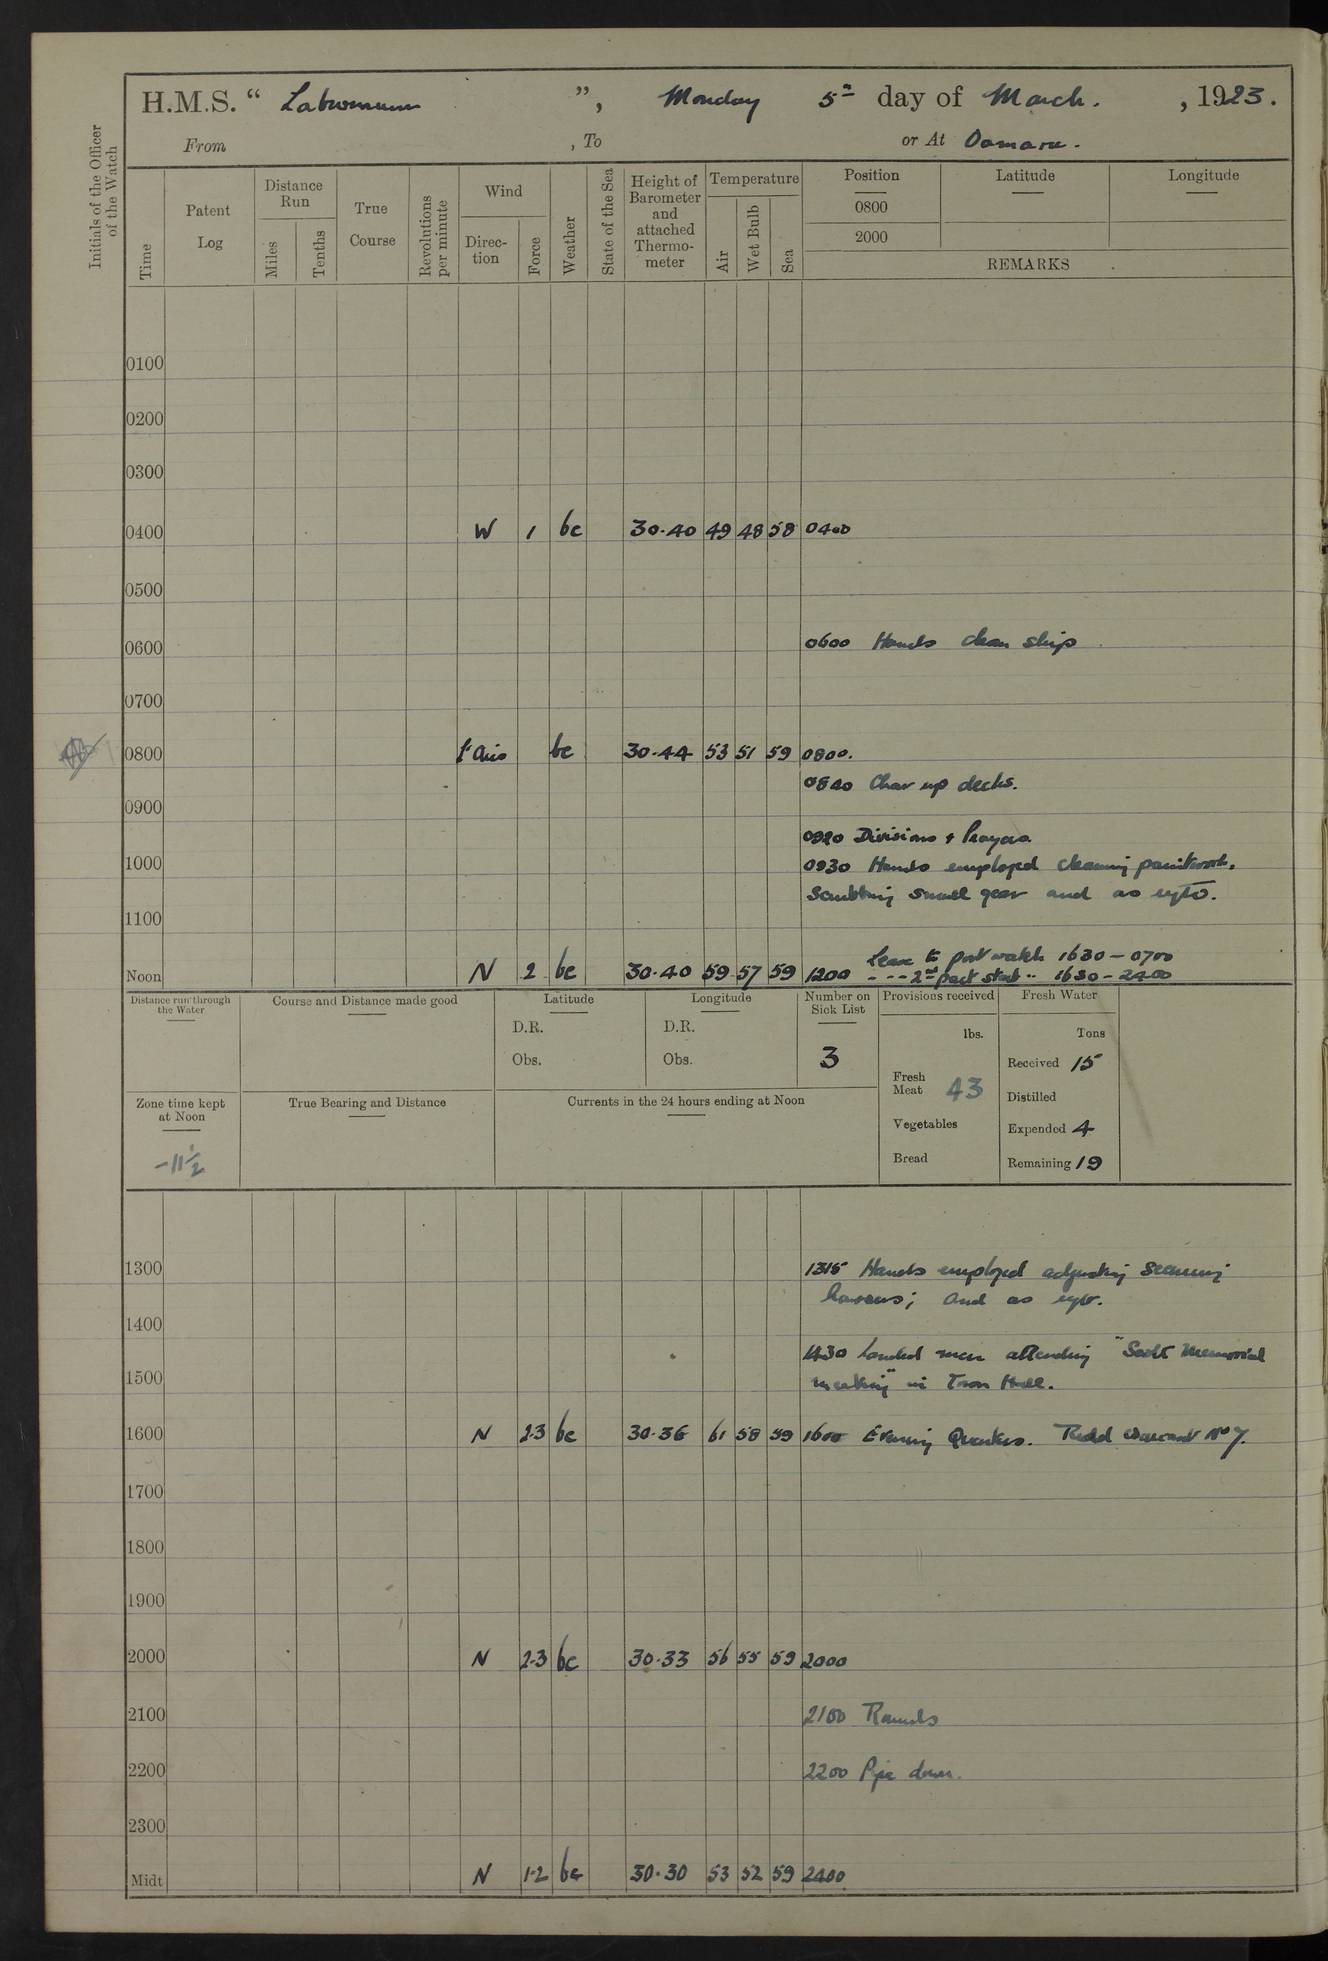 H.M.S. “ Laburnum ”, Monday 5th day of March. , 1923.
From , To or At Oamaru.
Initials of the Officer of the Watch
Time
Patent Log
Distance Run
Miles
Tenths
True Course
Revolutions per minute
Wind
Direc-tion
Force
Weather
State of the Sea
Height of Barometer and attached Thermo-meter
Temperature
Air
Wet Bulb
Sea
Position
0800
2000
Latitude
Longitude
REMARKS
0100
0200
0300
0400 W 1 bc 30.40 49 48 58 0400
0500
0600 0600 Hands clean ship
0700
0800 Lt Airs bc 30.44 53 51 59 0800.
0840 Clear up decks.
0900
0920 Divisions + Prayers.
1000 0930 Hands employed cleaning paintwork,
Scrubbing small gear and as reqte.
1100
Leave to port watch 1630 – 0700
Noon N 2 bc 30.40 59 57 59 1200 - - - 2nd part stab " 1630 – 2400
Distance run through the Water
Course and Distance made good
Latitude
D.R.
Obs.
Longitude
D.R.
Obs.
Number on Sick List
3
Provisions received
lbs.
Fresh Meat 43
Vegetables
Bread
Fresh Water
Tons
Received 15
Distilled
Expended 4
Remaining 19
Zone time kept at Noon
-11½
True Bearing and Distance
Currents in the 24 hours ending at Noon
1300 1315 Hands employed adjusting securing
hawsers; and as reqr.
1400
1430 Landed men attending "Scott Memorial
1500 meeting" in Town Hall.
1600 N 2.3 bc 30.36 61 58 59 1600 Evening Quarters. Read Warrant No 7.
1700
1800
1900
2000 N 2.3 bc 30.33 56 55 59 2000
2100 2100 Rounds
2200 2200 Pipe down.
2300
Midt N 1.2 bc 30.30 53 52 59 2400